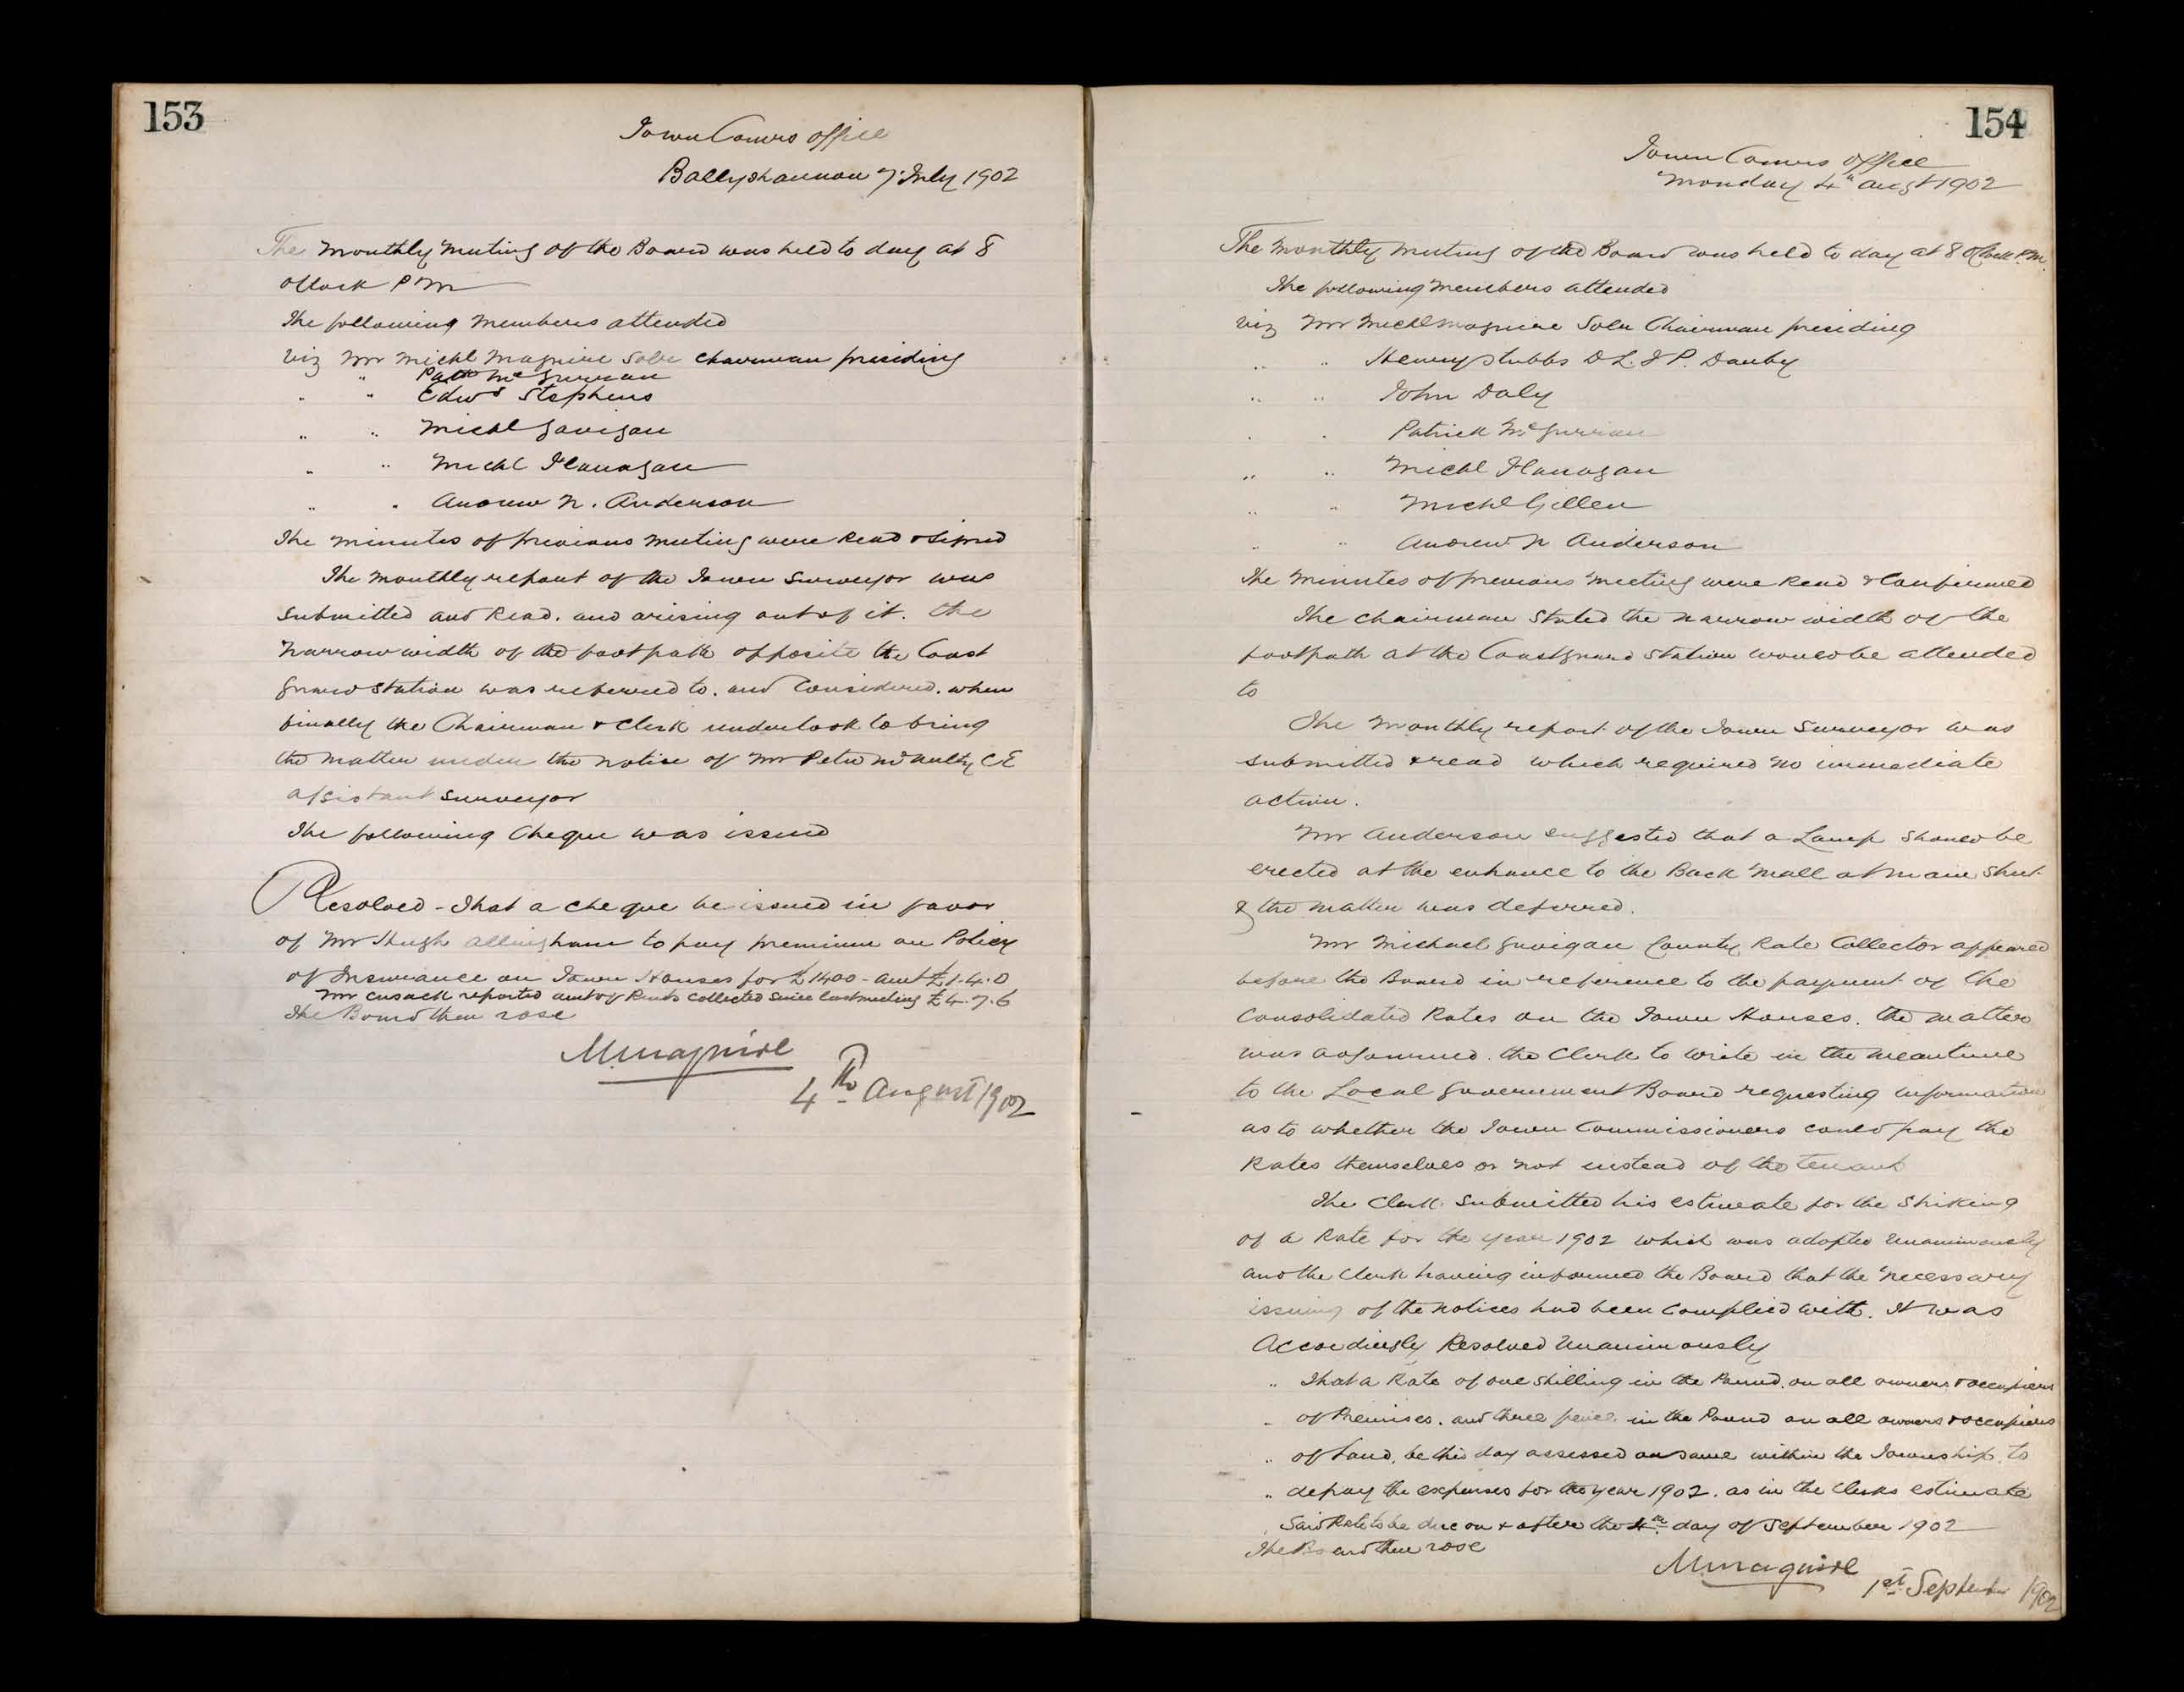 153
Town Comrs office
Ballyshannon 7 July 1902
The monthly meeting of the Board was held to day at 8
oClock P M
The following members attended
viz Mr Michl Maguire Solr Chairman presiding
" Patk McGurrian
" " Edwd Stephens
" " Michl Gavigan
" " Michl Flanagan
" " Andrew N. Anderson
The minutes of previous meeting were Read & signed
The monthly report of the Town Surveyor was
submitted and Read. and arising out of it. the
narrow width of the footpath opposite the Coast
guard Station was referred to. and Considered. when
finally the Chairman & Clerk undertook to bring
the matter under the notice of Mr Peter McNulty C E
assistant surveyor
The following Cheque was issued
Resolved - That a cheque be issued in favor
of Mr Hugh Allingham to pay premium on Policy
of Insurance on Town Houses for £1400 - amt £1.4.0
Mr Cusack reported amt of Rents Collected since last meeting £4.7.6
The Board then rose
M Maguire
4th August 1902
154
Town Comrs office
Monday 4th Augt 1902
The monthly meeting of the Board was held to day at 8 OClock P.M.
The following members attended
viz Mr Michl Maguire Solr Chairman presiding
" " Henry Stubbs D L. J P. Danby
" " John Daly
" " Patrick McGurrian
" " Michl Flanagan
" " Michl Gillen
" " Andrew N Anderson
The minutes of previous meeting were Read & Confirmed
The chairman Stated the narrow width of the
footpath at the Coastguard Station would be attended
to
The monthly report of the Town Surveyor was
submitted & read which required no immediate
action.
Mr Anderson suggested that a Lamp should be
erected at the entrance to the Back Mall at Main Street
& the matter was deferred.
Mr Michael Gavigan County Rate Collector appeared
before the Board in reference to the payment of the
Consolidated Rates on the Town Houses. the matter
was adjourned. the Clerk to write in the meantime
to the Local Government Board requesting information
as to whether the Town Commissioners could pay the
Rates themselves or not instead of the tenant
The Clerk submitted his estimate for the Striking
of a Rate for the year 1902 which was adopted unanimously
and the Clerk having informed the Board that the necessary
issuing of the notices had been Complied with. It was
Accordingly Resolved Unanimously
" That a Rate of one shilling in the Pound. on all owners & occupiers
" of Premises. and three pence in the Pound on all owners & occupiers
" of Land, be this day assessed on same within the Township. to
" defray the expenses for the year 1902. as in the Clerks estimate
" Said Rate to be due on & after the 4th day of September 1902
The Board then rose
M Maguire
1st September 1902